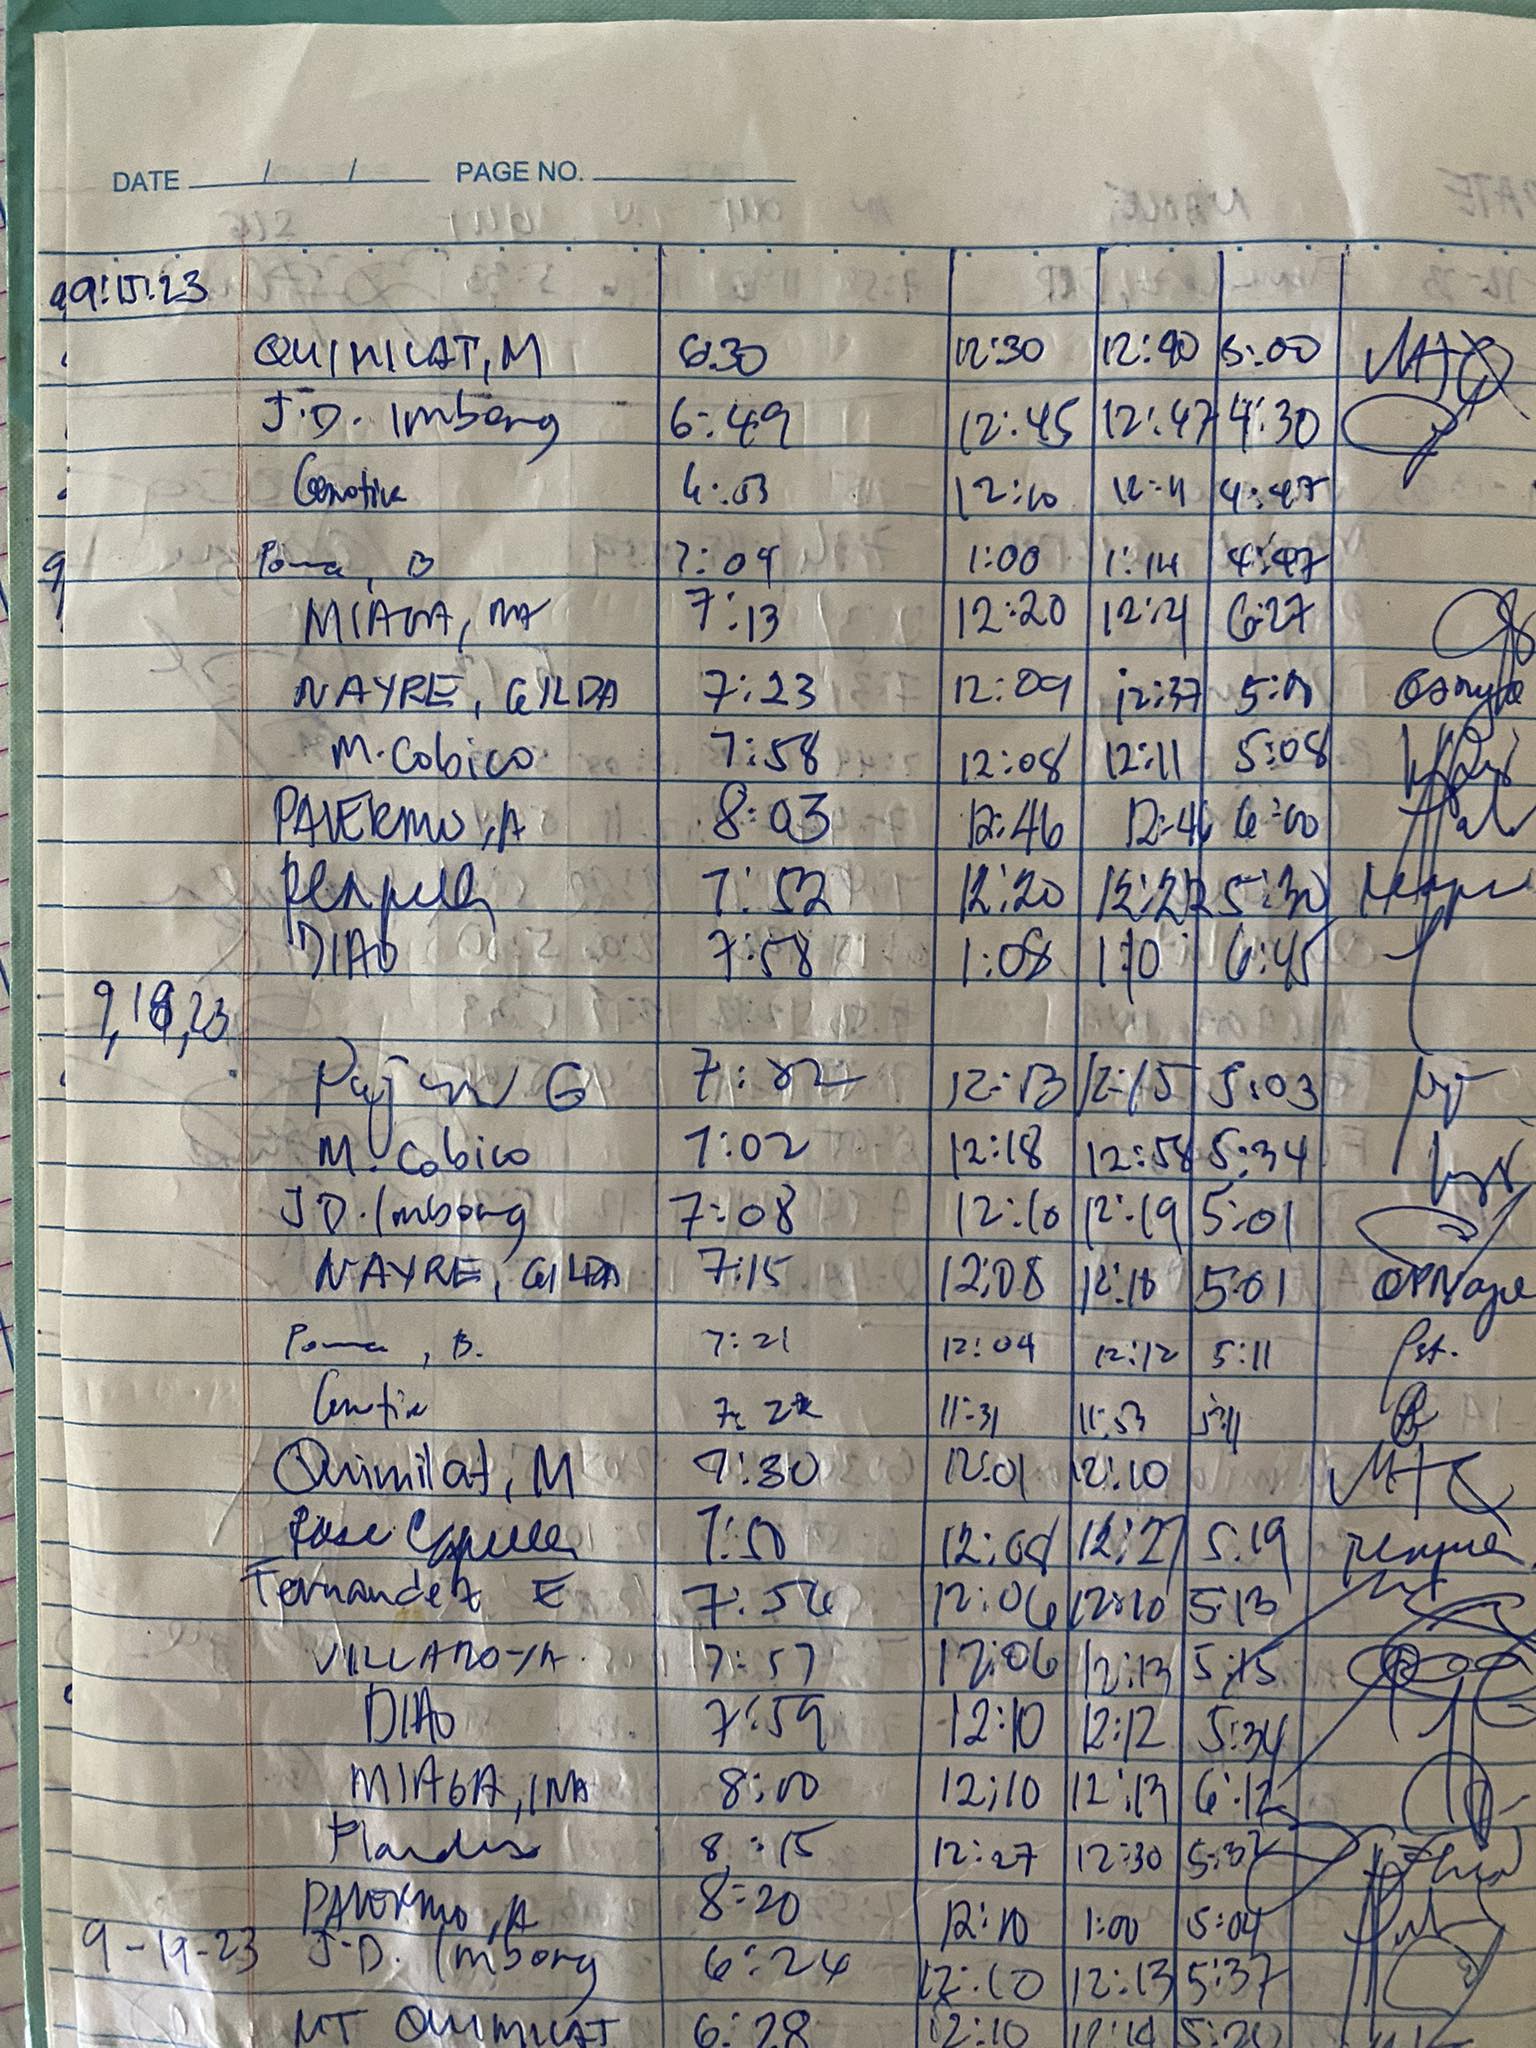 DATE / / PAGE NO.
9:15:23
QUIMILAT, M 6:30 12:30 12:40 5:00
J.D. Imbong 6:49 12:45 12:47 4:30
6:53 12:10 12:11 4:47
Poma, B 7:09 1:00 1:14 4:47
MIAGA, 7:13 12:20 12:21 6:27
NAYRE, GILDA 7:23 12:09 12:37
M. Cobico 7:58 12:08 12:11 5:08
PALERMO, A 8:03 12:46 12:46 6:00
7:52 12:20 12:22 5:30
DIAO 7:58 1:08 1:10 6:45
9,18,23
G 12:13 12:15 5:03
M. Cobico 7:02 12:18 12:58 5:34
J.D. Imbong 7:08 12:10 12:19 5:01
NAYRE, GILDA 7:15 12:08 12:10 5:01
Poma, B. 7:21 12:04 12:12 5:11
11:31 11:53 5:11
Quimilat, M 7:30 12:01 12:10
Rose 7:50 12:08 12:27 5:19
Fernandez E 7:56 12:06 12:10 5:13
VILLAROYA 7:57 12:06 12:13 5:15
DIAO 7:59 12:10 12:12 5:34
MIAGA, INA 8:00 12:10 12:13 6:12
8:15 12:27 12:30 5:32
PALERMO, A 8:20 12:10 1:00 5:04
9-19-23 J.D. Imbong 6:24 12:10 12:13 5:37
MT QUIMILAT 6:28 12:10 12:14 5:20